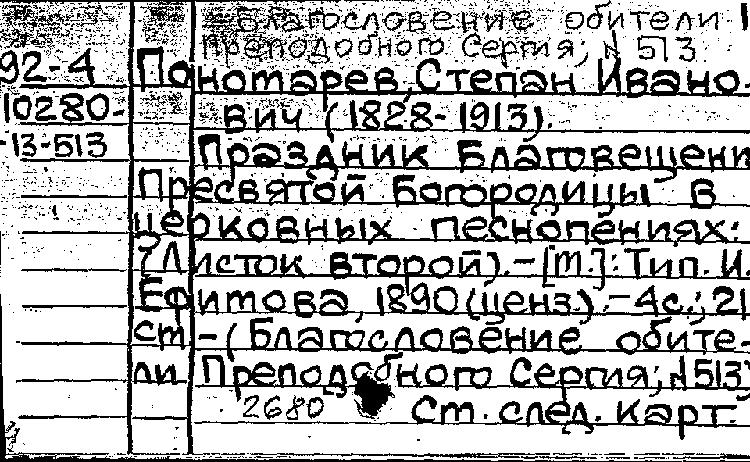 Благословение обители
преподобного Сергия; N 513
92-4 Пономарев, Степан Ивано-
10280- вич (1828-1913).
-13-513 Праздник Благовещени
Пресвятой Богородицы в
церковных песнопениях:
(Листок второй).-[М.]: Тип. И.
Ефимова, 1890(ценз.).-4с.; 21
см -(Благословение обите-
ли Преподобного Сергия; N513)
2680 См. след. карт.